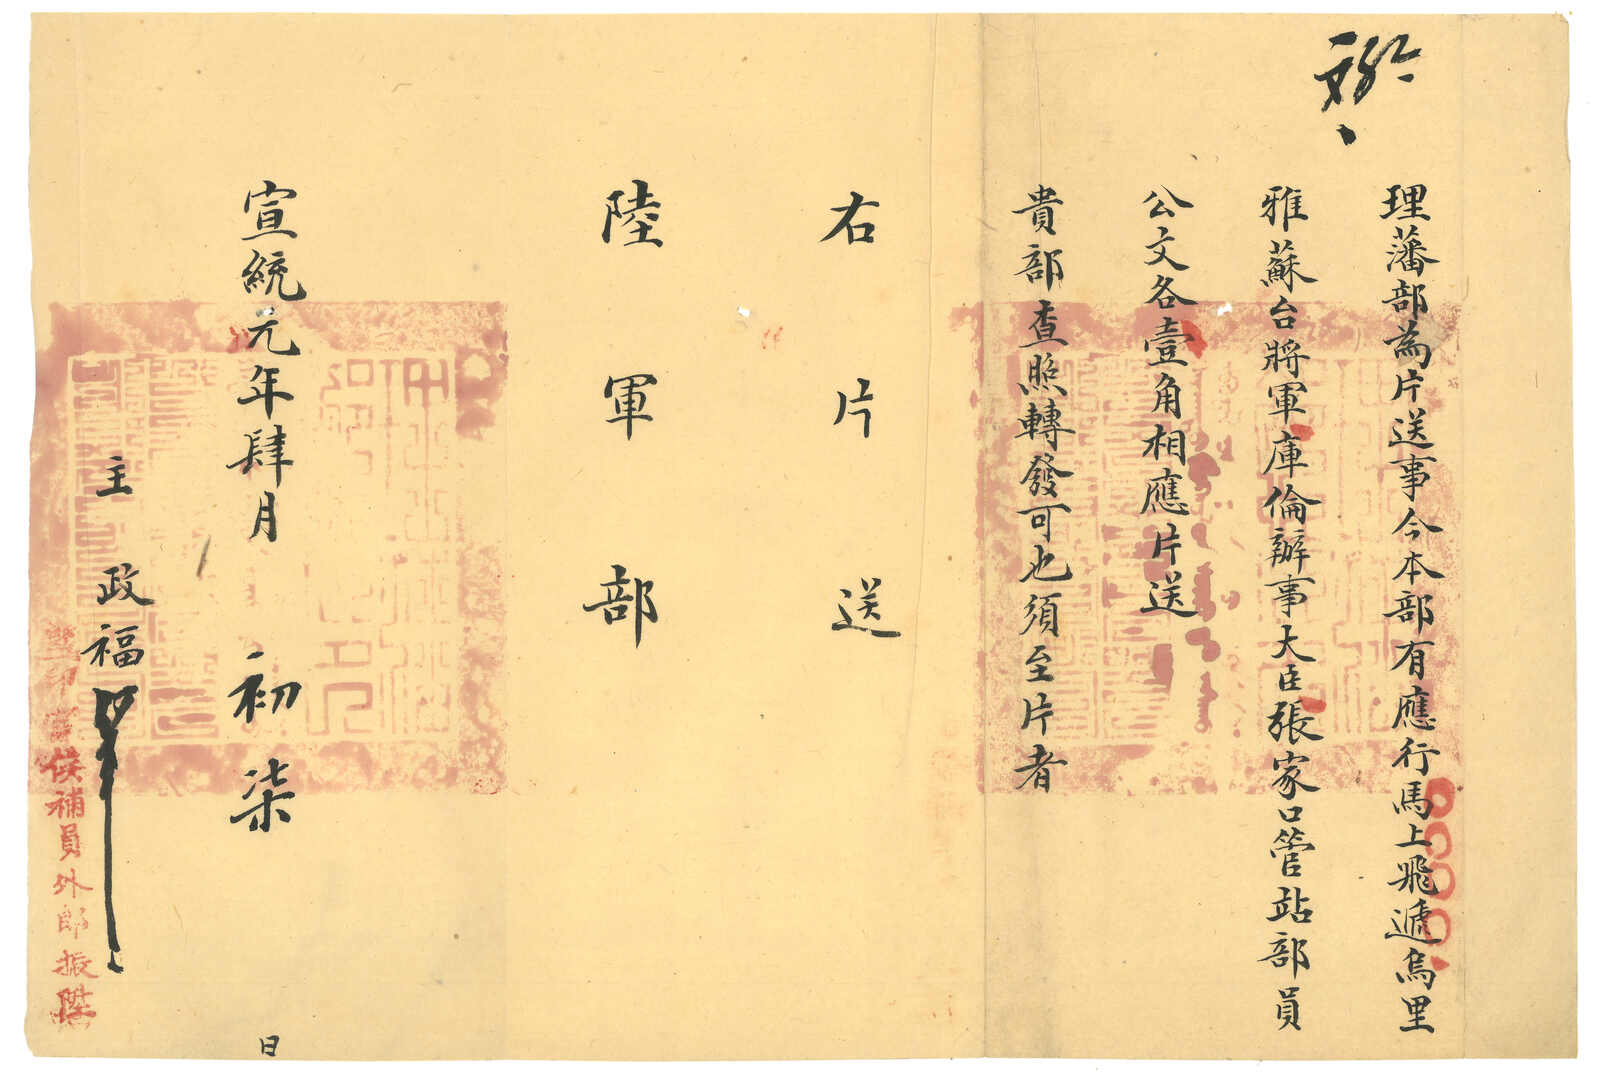 理藩部為片送事今本部有應行馬上飛遞烏里
雅蘇台將軍庫倫辦事大臣張家口管站部員
公文各壹角相應片送
貴部查照轉發可也須至片者
右片送
陸軍部
宣統元年肆月初柒日
主政福
候補員外郎振陞